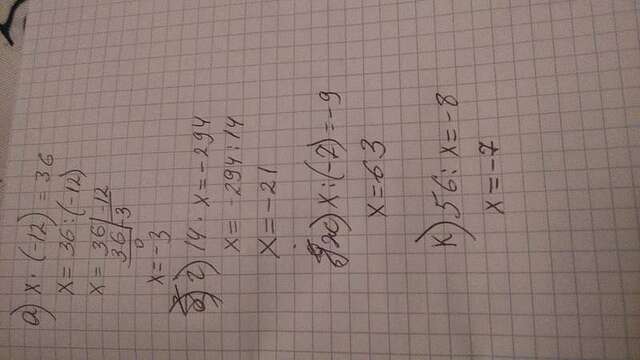 а) x · (-12) = 36
x = 36 : (-12)
x = 36 | -12
36 | 3
0
x = -3
г) 14 · x = -294
x = -294 : 14
x = -21
ж) x : (-7) = -9
x = 63
к) 56 : x = -8
x = -7